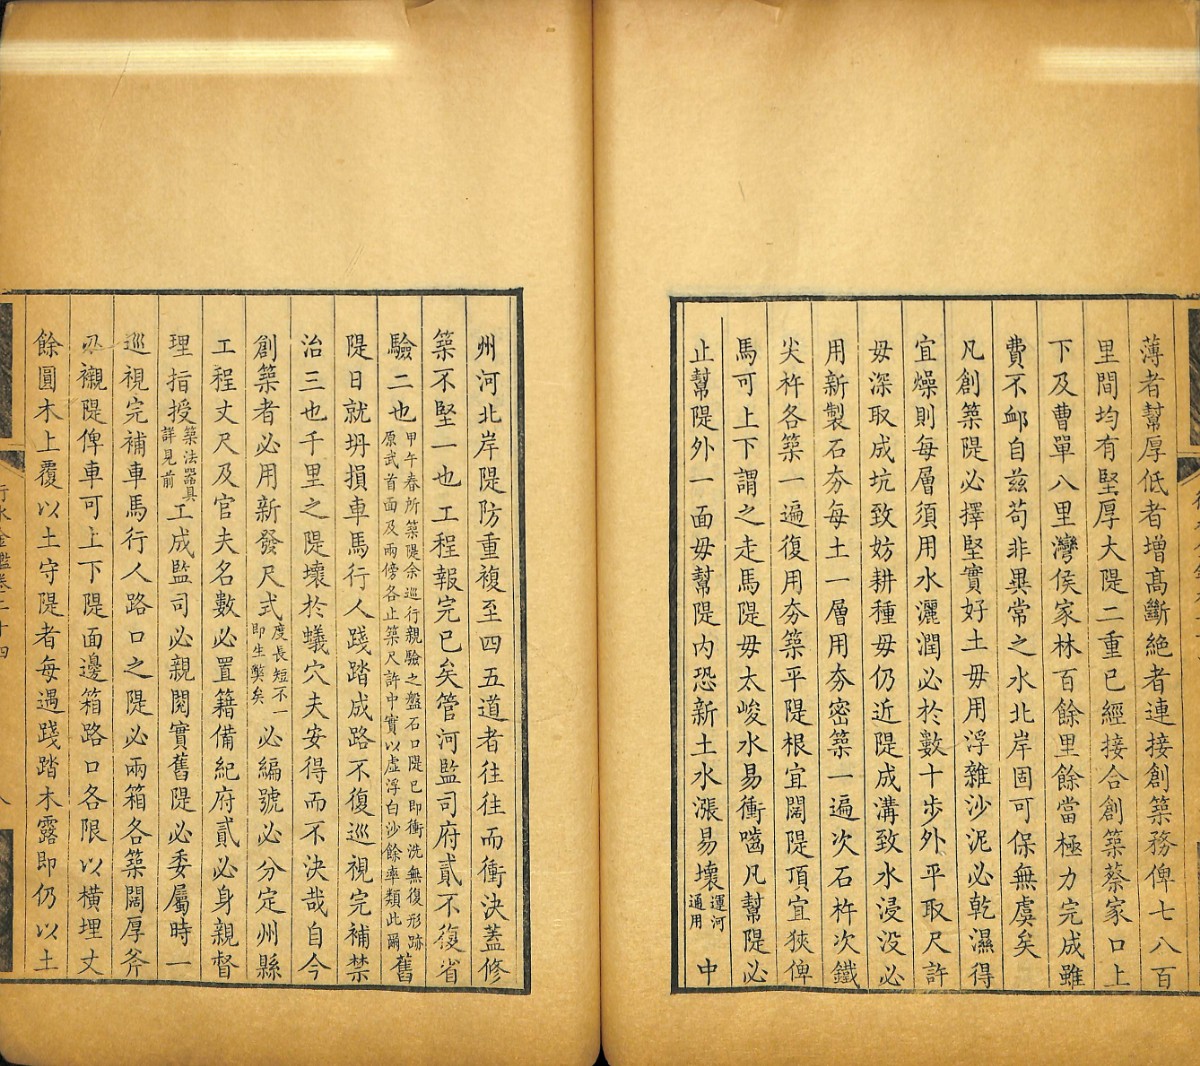 薄者幫厚低者增高斷絕者連接創築務俾七八百
里間均有堅厚大隄二重已經接合創築蔡家口上
下及曹單八里灣侯家林百餘里餘當極力完成雖
費不邮自茲苟非異常之水北岸固可保無虞矣
凡創築隄必擇堅實好土毋用浮雜沙泥必乾濕得
宜燥則每層須用水灑潤必於數十步外平取尺許
毋深取成坑致妨耕種毋仍近隄成溝致水浸没必
用新製石夯每土一層用夯密築一遍次石杵次鐵
尖杵各築一遍復用夯築平隄根宜闊隄頂宜狹俾
馬可上下謂之走馬隄毋太峻水易衝嚙凡幫隄必
止幫隄外一面毋幫隄内恐新土水漲易壞運河通用 中
州河北岸隄防重複至四五道者往往而衝決蓋修
築不堅一也工程報完已矣管河監司府貳不復省
驗二也甲午春所築隄余巡行親驗之盤石口隄已即衝洗無復形跡原武首面及兩傍各止築尺許中實以虚浮白沙餘率類此爾舊
隄日就坍損車馬行人踐踏成路不復巡視完補禁
治三也千里之隄壞於蟻穴夫安得而不決哉自今
創築者必用新發尺式度長短不一即生獘矣必編號必分定州縣
工程丈尺及官夫名數必置籍備紀府貳必身親督
理指授築法器具詳見前工成監司必親閱實舊隄必委屬時一
巡視完補車馬行人路口之隄必兩箱各築闊厚斧
刃襯隄俾車可上下隄面邊箱路口各限以橫埋丈
餘圓木上覆以土守隄者每遇踐踏木露即仍以土
行水金鑑卷二十四
八